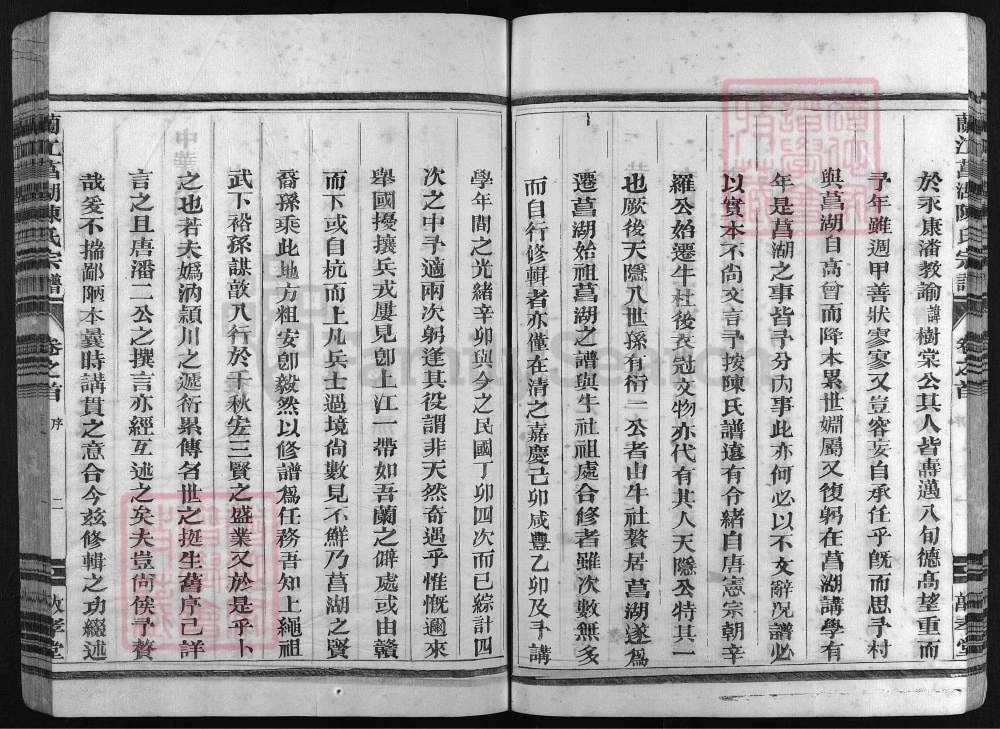 蘭江菖湖陳氏宗譜 卷之首
於永康潘教諭諱樹棠公其人皆壽邁八旬德高望重而
予年雖週甲善狀寥寥又豈容妄自承任乎旣而思予村
與菖湖自高曾而降木累世婣屬又復躬在菖湖講學有
年是菖湖之事皆予分內事此亦何必以不文辭况譜必
以實本不尙文言予按陳氏譜遠有令緒自唐憲宗朝辛
羅公始遷牛杜後衣冠文物亦代有其人天隱公特其一
也厥後天隱八世孫有衍二公者由牛社贅居菖湖遂爲
遷菖湖始祖菖湖之譜與牛社祖處合修者雖次數無多
而自行修輯者亦僅在清之嘉慶己卯咸豐乙卯及予講
學年間之光緒辛卯與今之民國丁卯四次而已綜計四
次之中予適兩次躬逢其役謂非天然奇遇乎惟慨邇來
舉國擾攘兵戎屢見卽上江一帶如吾蘭之僻處或由贛
而下或自杭而上凡兵士過境尙數見不鮮乃菖湖之賢
裔孫乘此地方粗安卽毅然以修譜爲任務吾知上繩祖
武下裕孫謀歆八行於千秋宏三賢之盛業又於是乎卜
之也若夫嬀汭潁川之遞衍累傳名世之挺生舊序已詳
言之且唐潘二公之撰言亦經互述之矣夫豈尙俟予贅
哉爰不揣鄙陋本曩時講貫之意合今玆修輯之功綴述
蘭江菖湖陳氏宗譜 卷之首 序 二 敦孝堂